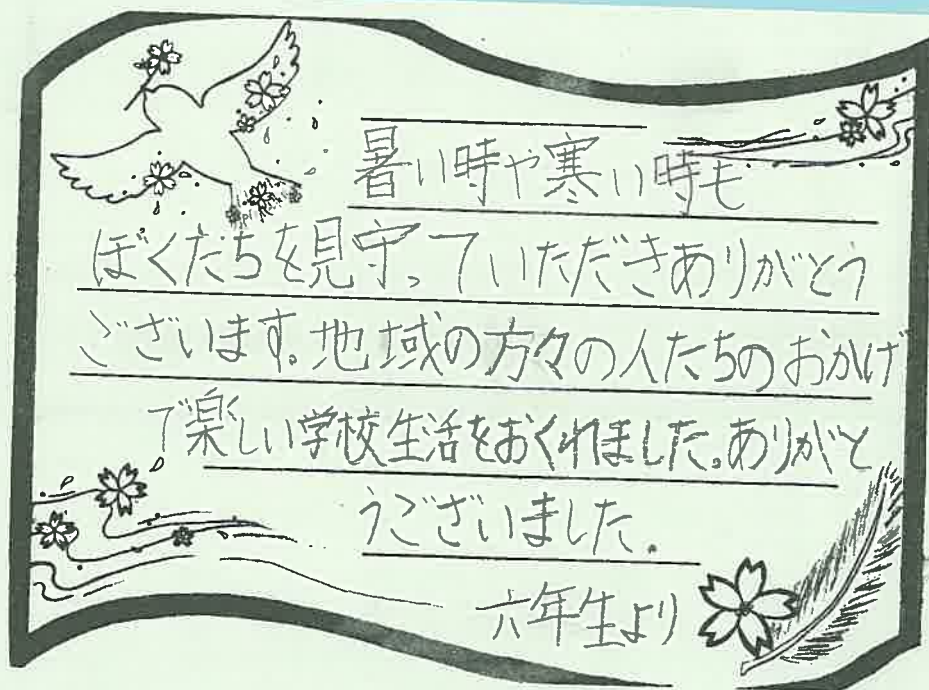 暑い時や寒い時も
ぼくたちを見守っていただきありがとう
ございます。地域の方々の人たちのおかげ
で楽しい学校生活をおくれました。ありがと
うございました。
六年生より